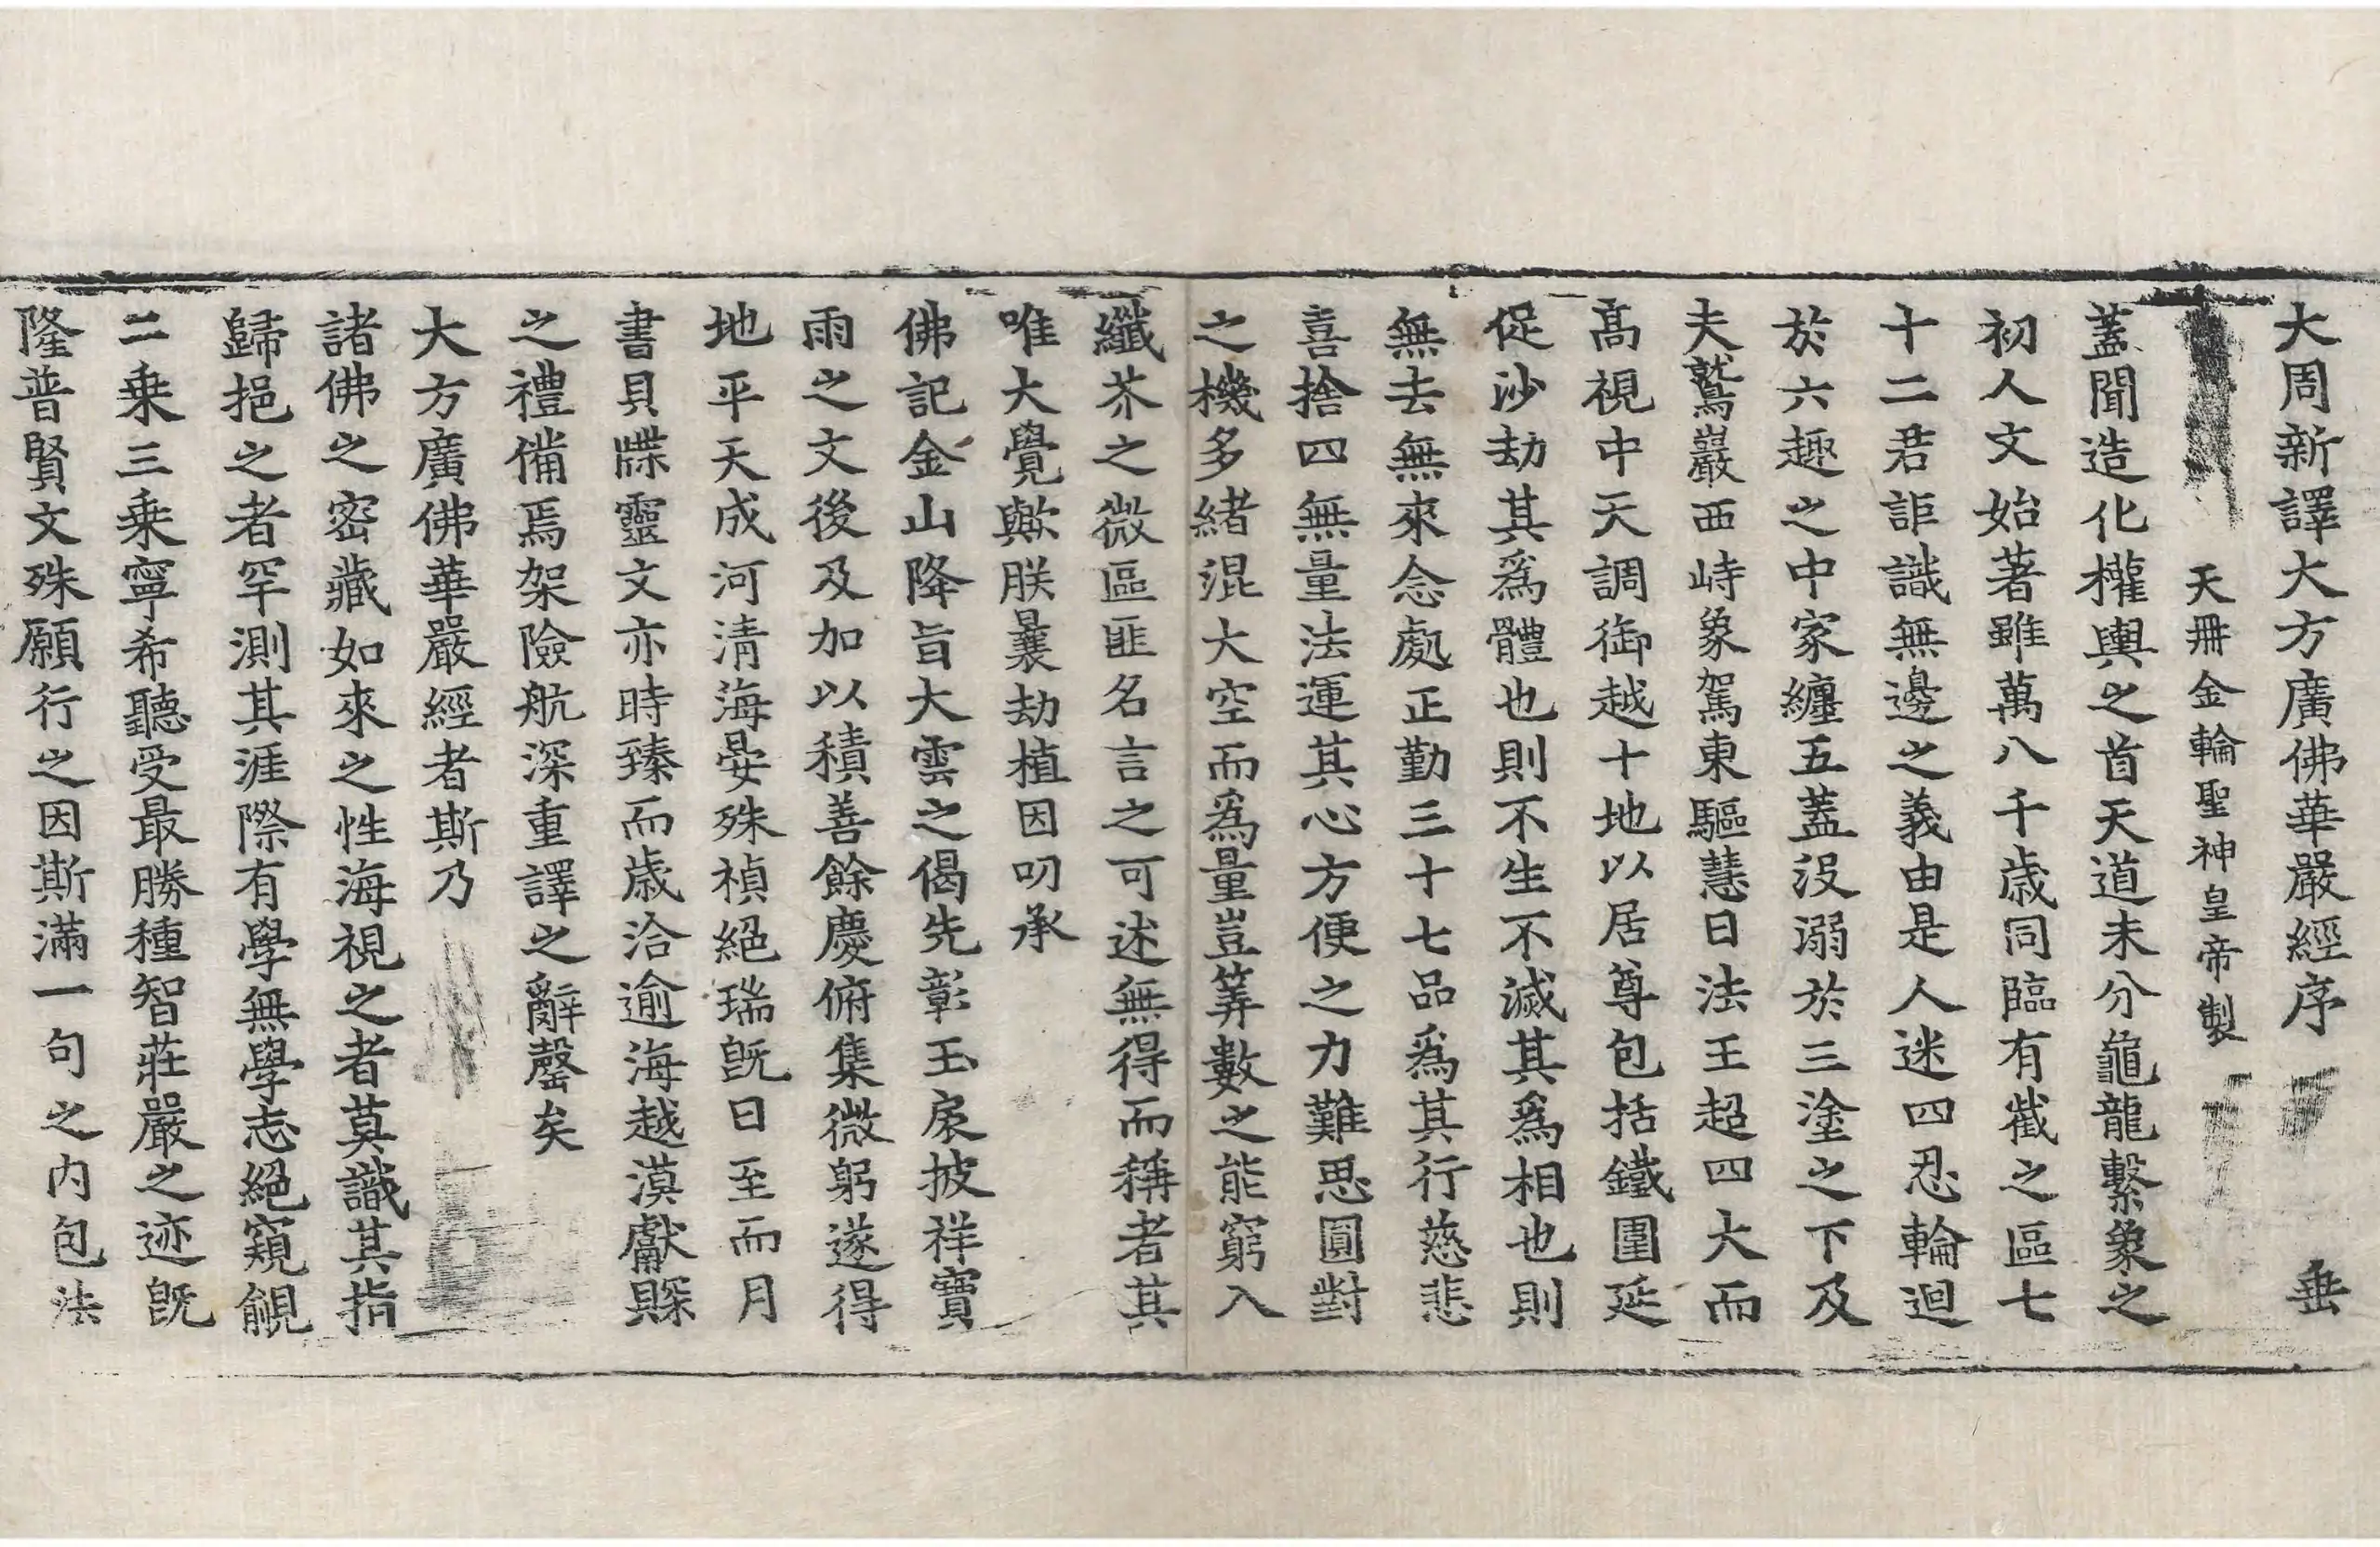 大周新譯大方廣佛華嚴經序 垂
天冊金輪聖神皇帝製
蓋聞造化權輿之首天道未分龜龍繫象之
初人文始著雖萬八千歲同臨有截之區七
十二君詎識無邊之義由是人迷四忍輪迴
於六趣之中家纏五蓋沒溺於三塗之下及
夫鷲巖西峙象駕東驅慧日法王超四大而
高視中天調御越十地以居尊包括鐵圍延
促沙劫其爲體也則不生不滅其爲相也則
無去無來念處正勤三十七品爲其行慈悲
喜捨四無量法運其心方便之力難思圓對
之機多緒混大空而爲量豈筭數之能窮入
纖芥之微區匪名言之可述無得而稱者其
唯大覺歟朕曩劫植因叨承
佛記金山降旨大雲之偈先彰玉扆披祥寶
雨之文後及加以積善餘慶俯集微躬遂得
地平天成河淸海晏殊禎絕瑞旣日至而月
書貝牒靈文亦時臻而歲洽逾海越漠獻賝
之禮備焉架險航深重譯之辭罄矣
大方廣佛華嚴經者斯乃
諸佛之密藏如來之性海視之者莫識其指
歸挹之者罕測其涯際有學無學志絕窺覦
二乘三乘寧希聽受最勝種智莊嚴之迹旣
隆普賢文殊願行之因斯滿一句之內包法